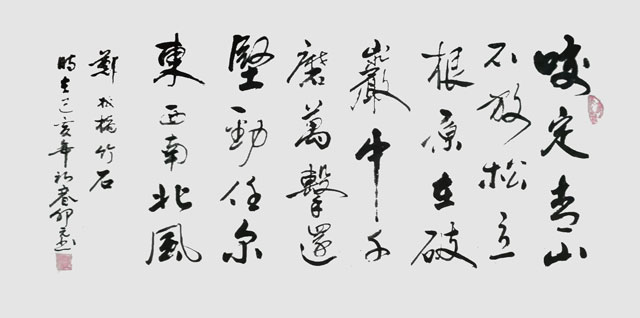 咬定青山
不放松立
根原在破
巖中千
磨萬擊還
堅勁任尔
東西南北風
鄭板橋竹石
時在己亥年初春